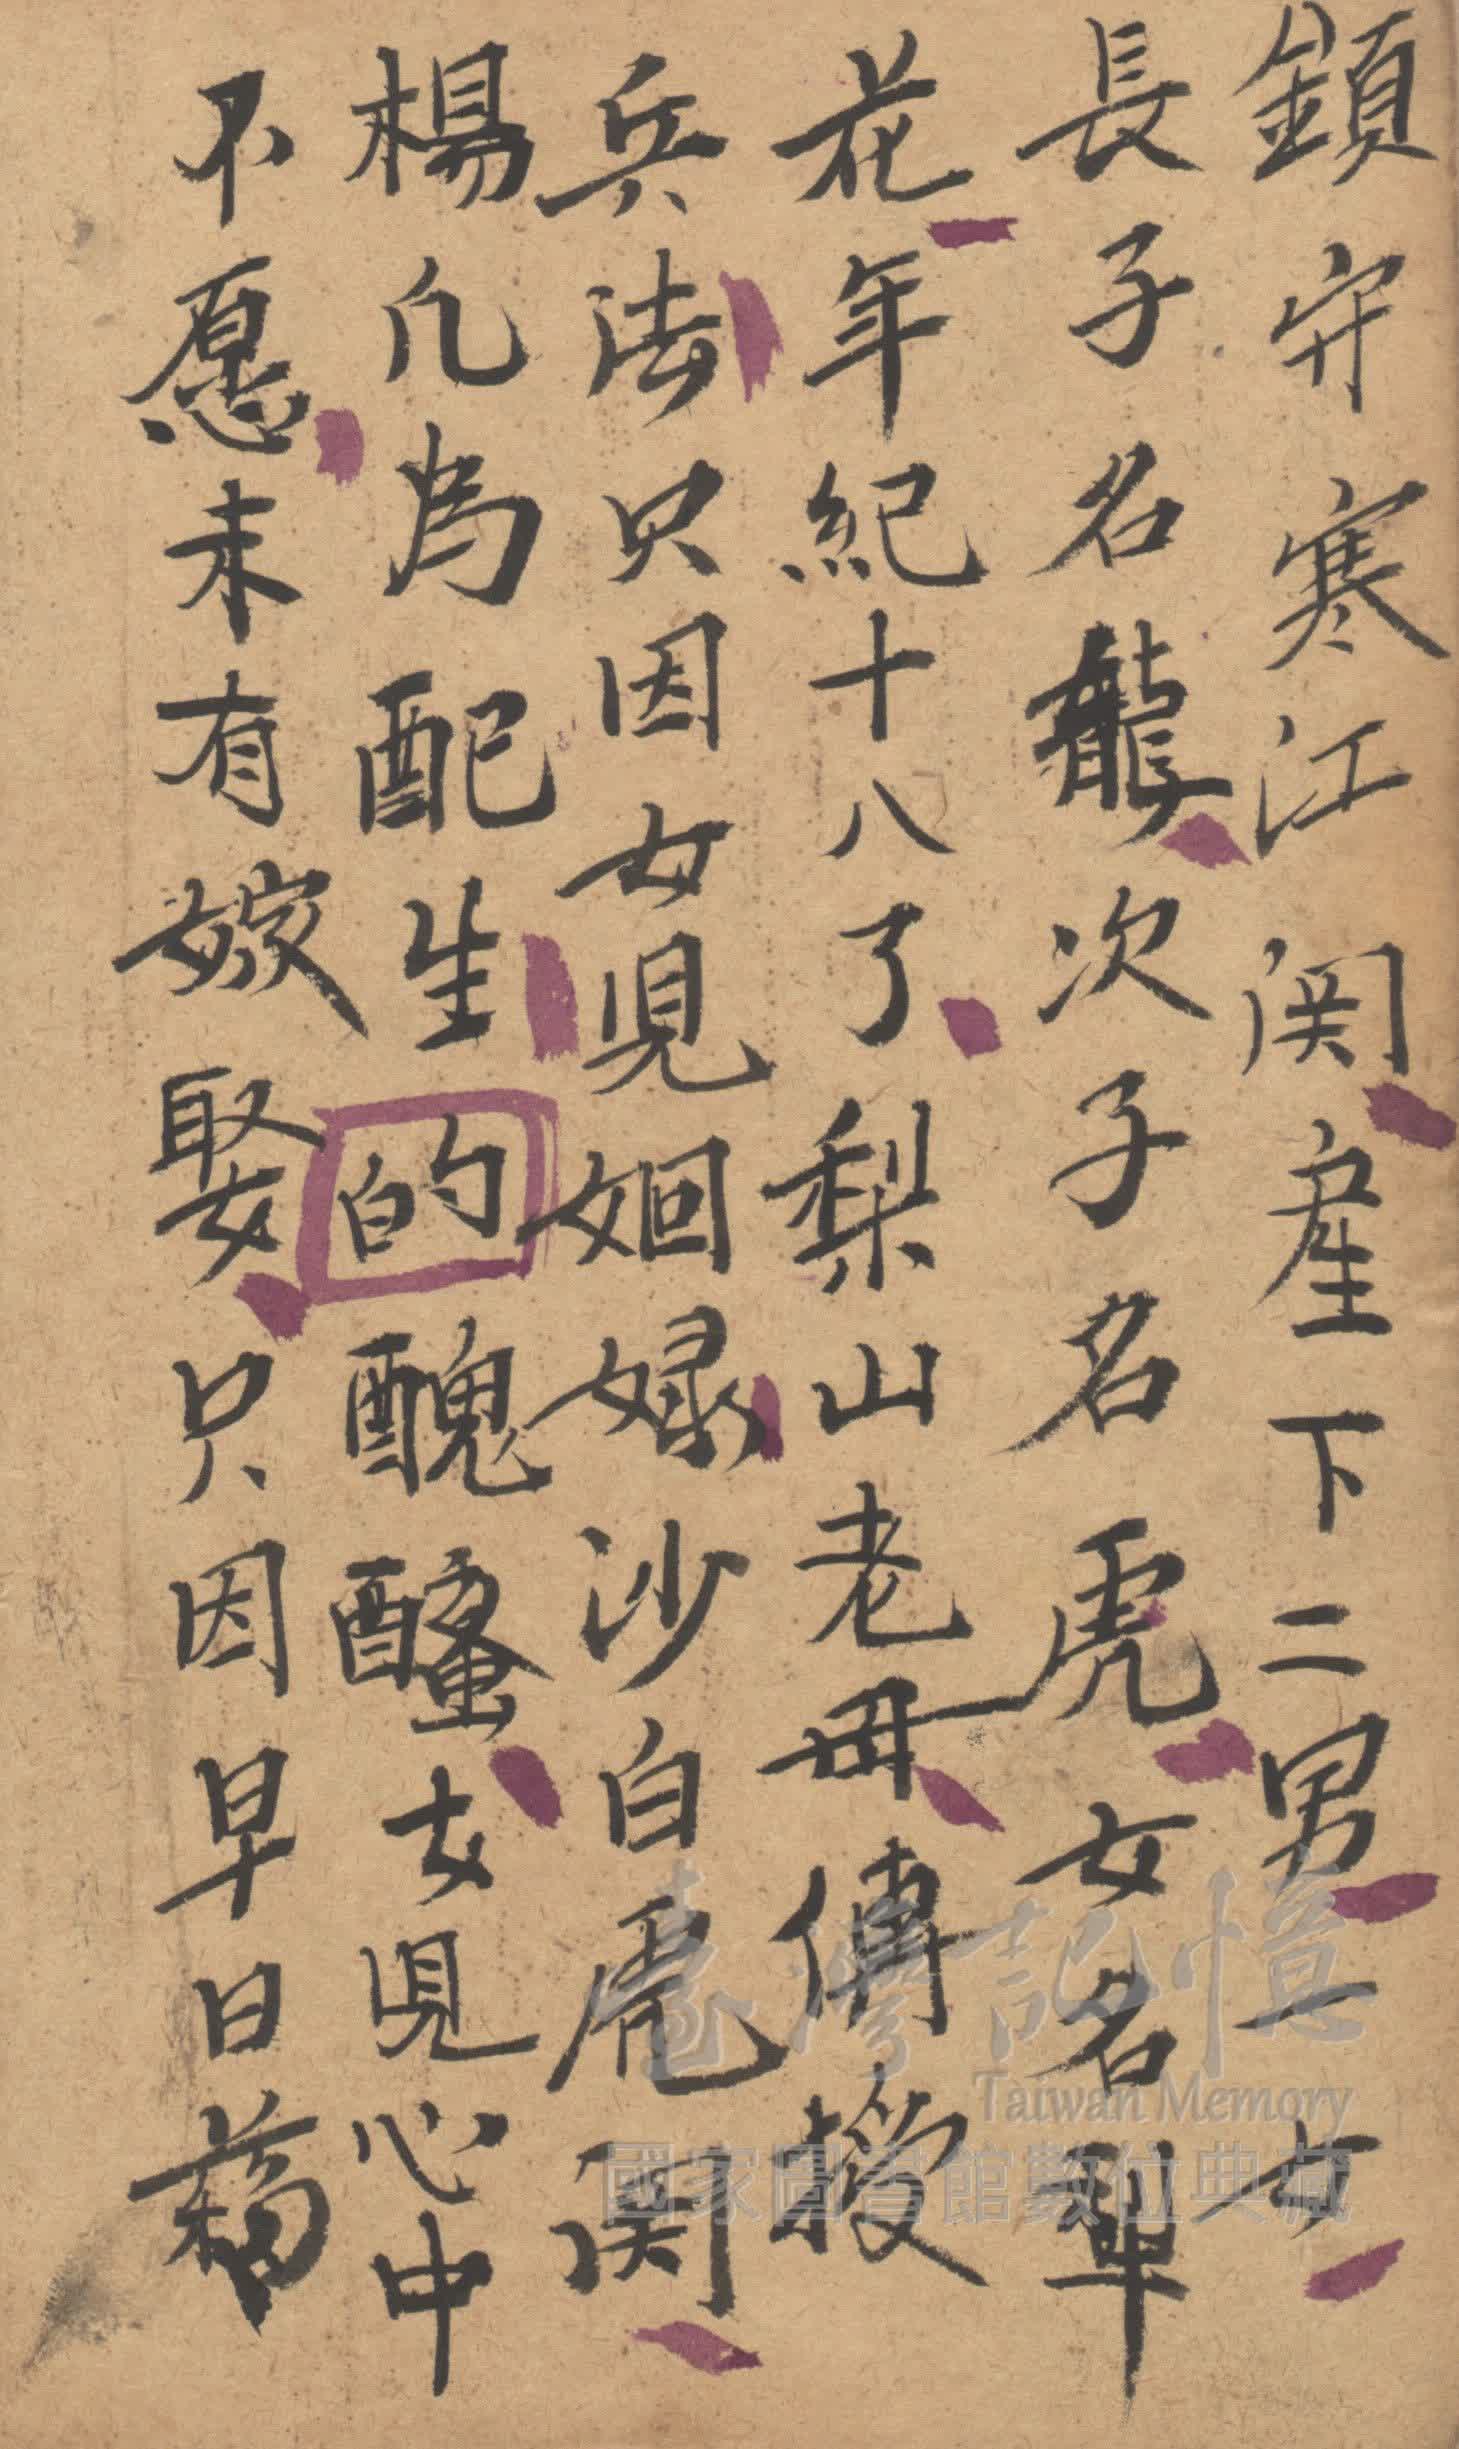 鎮守寒江関產下二男一女
長子名龍次子名虎女名犁
花年紀十八了梨山老母傳授
兵法只因女児姻緣沙白虎関
楊凢為配生的醜醘女児心中
不愿未有嫁娶只因早日
臺灣記憶
Taiwan Memory
國家圖書館數位典藏